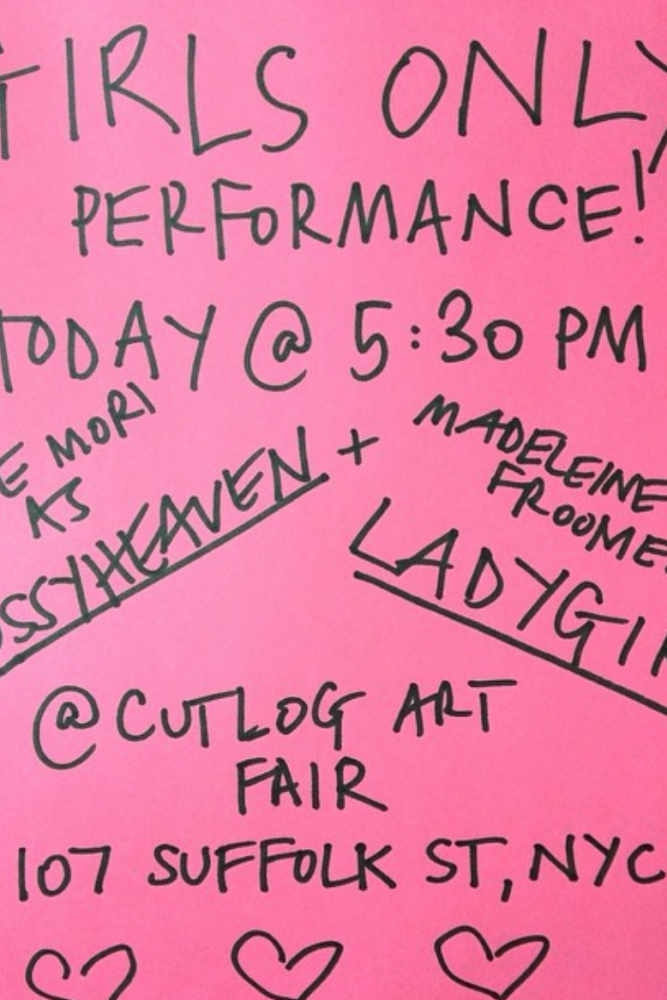 GIRLS ONLY
PERFORMANCE!
TODAY @ 5:30 PM
E MORI
AS
OSSYHEAVEN +
MADELEINE
FROOME
LADYGI
@ CUTLOG ART
FAIR
107 SUFFOLK ST, NYC